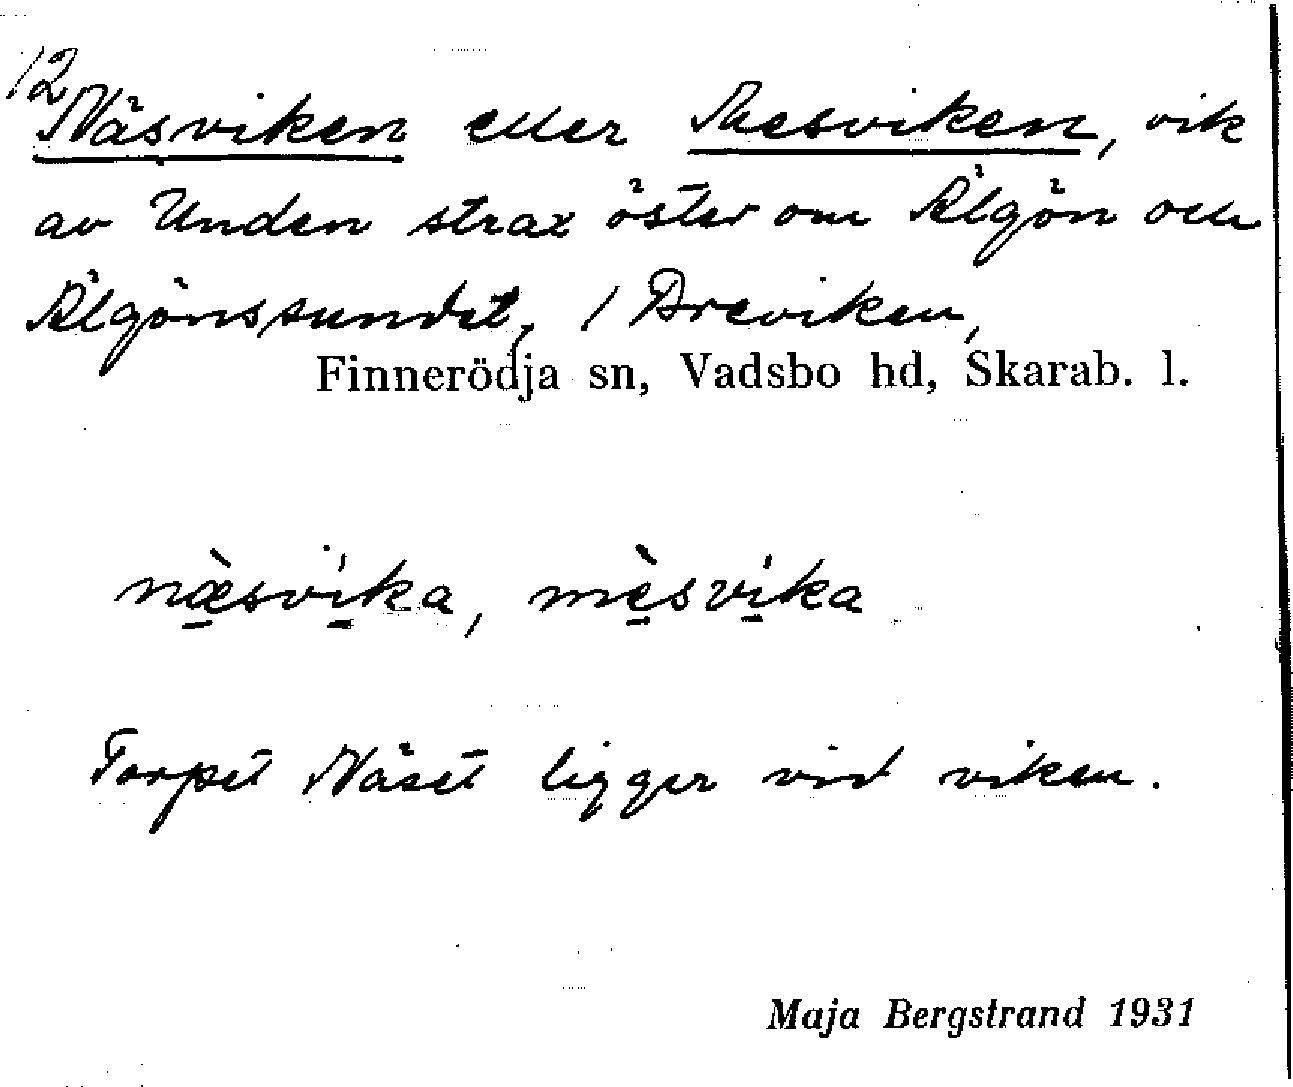 12
Näsviken eller Mesviken, vik
av Unden strax öster om Älgön och
Älgönssundet, / Breviken,
Finnerödja sn, Vadsbo hd, Skarab. l.
næ̀svi̍ka, mèsvi̍ka
Torpet Näset ligger vid viken.
Maja Bergstrand 1931